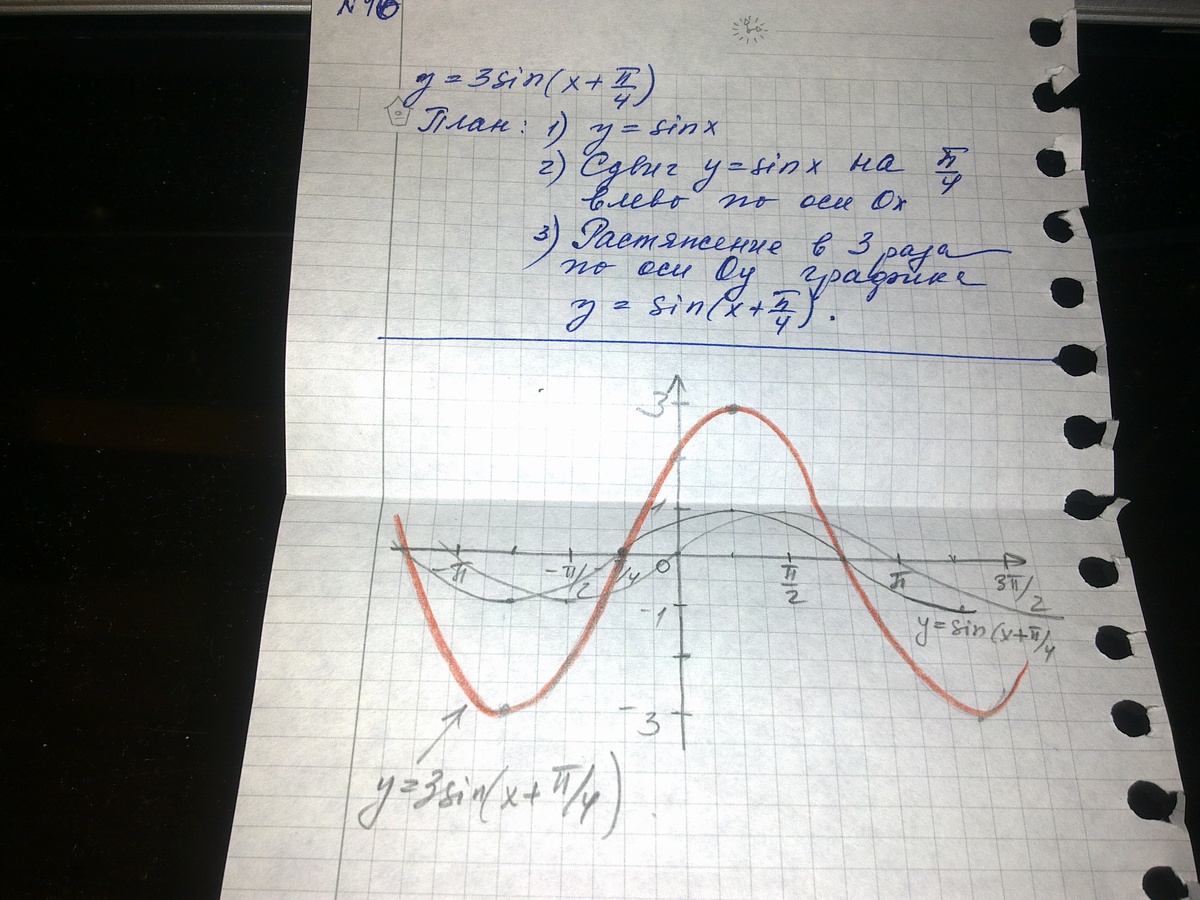 №16
y = 3sin(x + π/4)
План: 1) y = sinx
2) Сдвиг y = sinx на π/4
влево по оси Ox
3) Растяжение в 3 раза
по оси Oy графика
y = sin(x + π/4).
3
1
-π -π/2 π/4 0 π/2 π 3π/2
-1
y = sin(x + π/4
-3
y = 3sin(x + π/4)